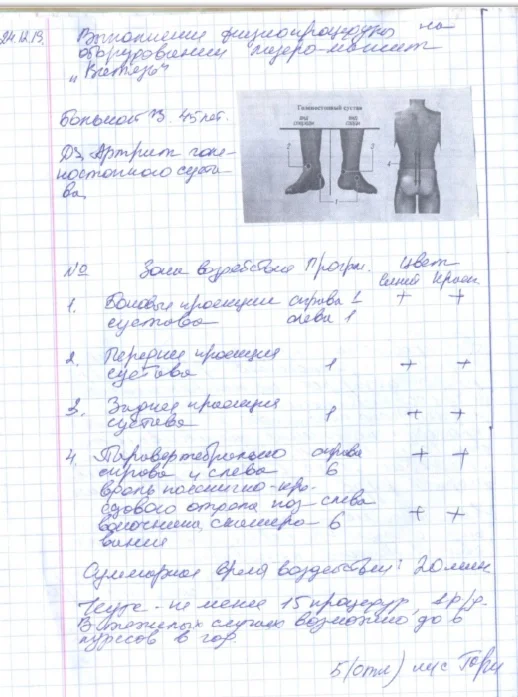 24.12.19. Выполнение физиопроцедуры на
оборудовании лазеро-магнит
„Витязь"
Больной В. 45 лет.
Голеностопный сустав
вид спереди
вид сзади
2
3
4
1
DS, Артрит голе-
ностопного суста-
ва
№ Зона воздействия Прогр. Цвет
синий Красн
1. Боковые проекции справа 1 + +
сустава слева 1
2. Передняя проекция
сустава 1 + +
3. Задняя проекция
сустава 1 + +
4. Паравертебрально справа + +
справа и слева 6
вдоль пояснично-кре-
стцового отдела поз- слева
воночника, сканиро- 6 + +
вание
Суммарное время воздействия: 20 мин
Курс - не менее 15 процедур, 1 р/д.
В тяжелых случаях возможно до 6
курсов в год.
5 (отл)